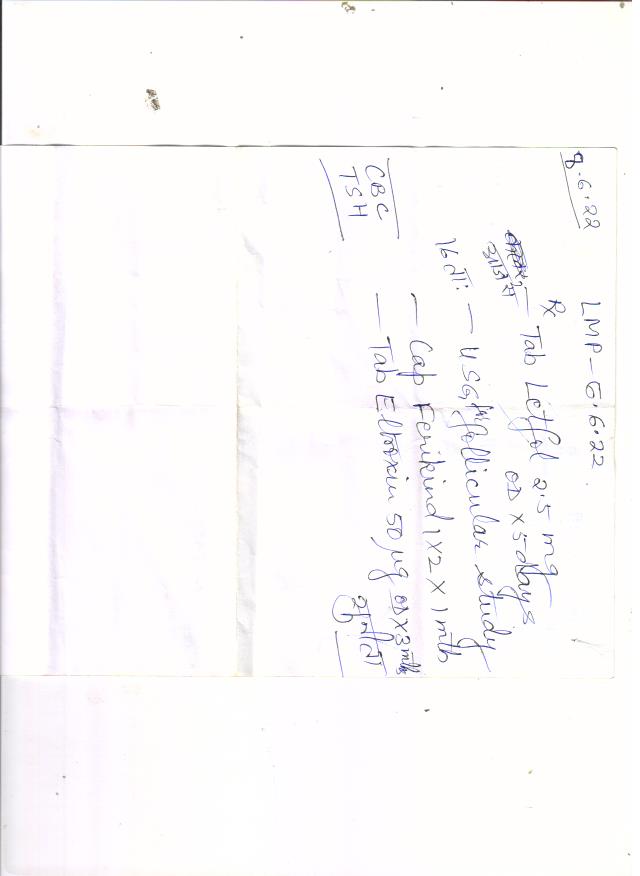 8.6.22
LMP - 6.6.22
Rx
- Tab Letfol 2.5 mg
OD X 5 days
- USG for follicular study
- Cap Fenikind 1 X 2 X 1 mth
- Tab Eltroxin 50 µg OD X 3 mths
CBC
TSH